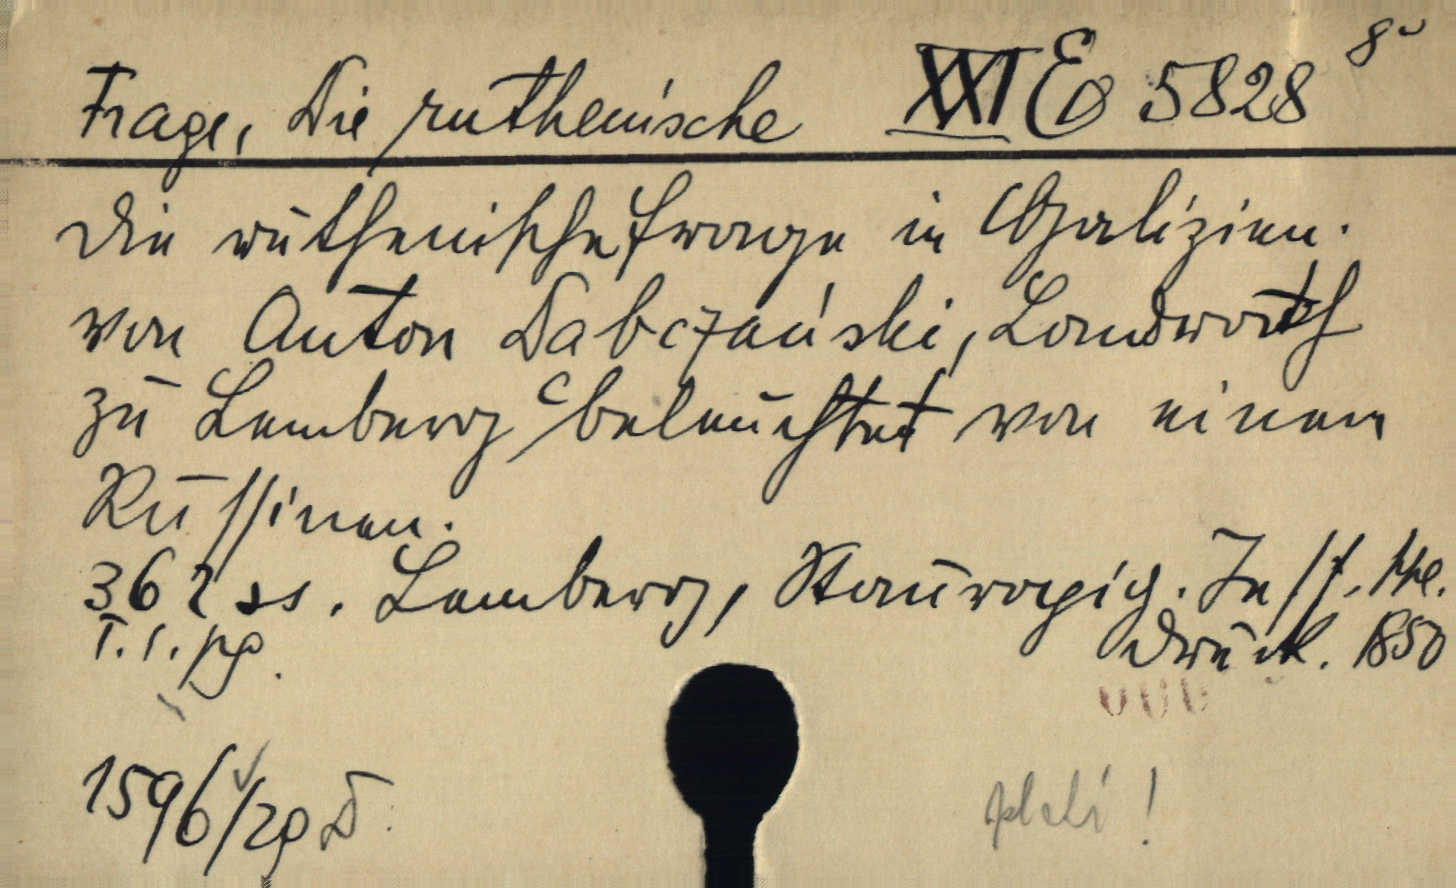 Frage, Die ruthenische XXI E 5828 8°
Die ruthenische Frage in Galizien.
von Anton Dabczański, Landrath
zu Lemberg beleuchtet von einem
Russinen.
36 2 ss. Lemberg, Stauropig. Inst.
T. l. pg. Druck. 1850
1596/29 D.
platí!